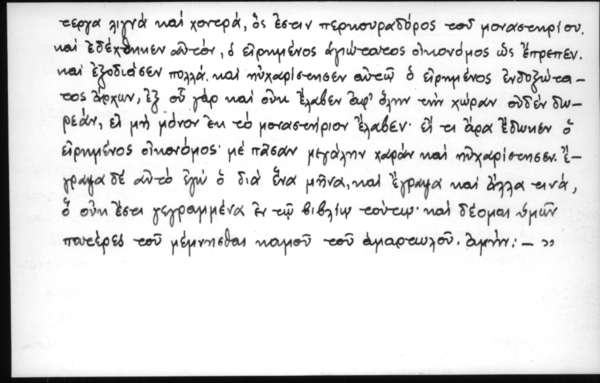 τεργα λιγνὰ καὶ χοντρά, ὅς ἐστιν περκουραδόρος τοῦ μοναστηρίου.
καὶ ἐδέχθηκεν αὐτόν, ὁ εἰρημένος ἁγιώτατος οἰκονόμος ὡς ἔπρεπεν.
καὶ ἐξοδιάσεν πολλά. καὶ ηὐχαρίστησεν αὐτῶ ὁ εἰρημένος ἐνδοξώτα-
τος ἄρχων, ἐξ οὗ γὰρ καὶ οὐκ ἔλαβεν ἀφ' ὅλην τὴν χώραν οὐδὲν δω-
ρεάν, εἰ μὴ μόνον ἐκ τὸ μοναστήριον ἔλαβεν· εἴ τι ἄρα ἔδωκεν ὁ
εἰρημένος οἰκονόμος· μὲ πᾶσαν μεγάλην χαρὰν καὶ ηὐχαρίστησεν. ἔ-
γραψα δὲ αὐτὸ ἐγὼ ὁ διὰ ἕνα μῆνα, καὶ ἔγραψα καὶ ἄλλα τινά,
ὅ οὐκ ἔστι γεγραμμένα ἐν τῷ βιβλίῳ τούτῳ· καὶ δέομαι ὑμῶν
πατέρες τοῦ μέμνησθαι καμοῦ τοῦ ἁμαρτωλοῦ. ἀμήν: — »